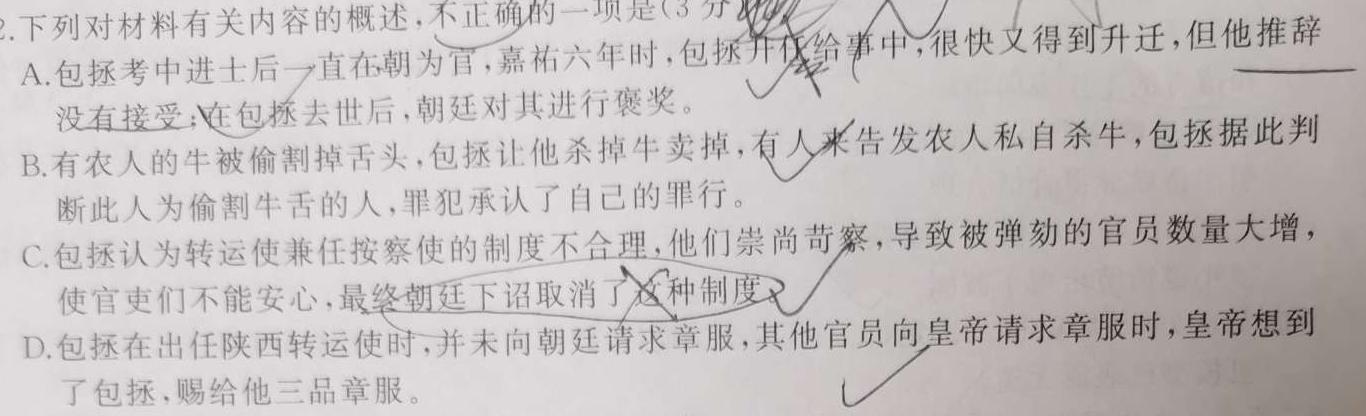 2.下列对材料有关内容的概述,不正确的一项是(3分
A.包拯考中进士后一直在朝为官,嘉祐六年时,包拯升任给事中,很快又得到升迁,但他推辞
没有接受;在包拯去世后,朝廷对其进行褒奖。
B.有农人的牛被偷割掉舌头,包拯让他杀掉牛卖掉,有人来告发农人私自杀牛,包拯据此判
断此人为偷割牛舌的人,罪犯承认了自己的罪行。
C.包拯认为转运使兼任按察使的制度不合理,他们崇尚苛察,导致被弹劾的官员数量大增,
使官吏们不能安心,最终朝廷下诏取消了这种制度。
D.包拯在出任陕西转运使时,并未向朝廷请求章服,其他官员向皇帝请求章服时,皇帝想到
了包拯,赐给他三品章服。